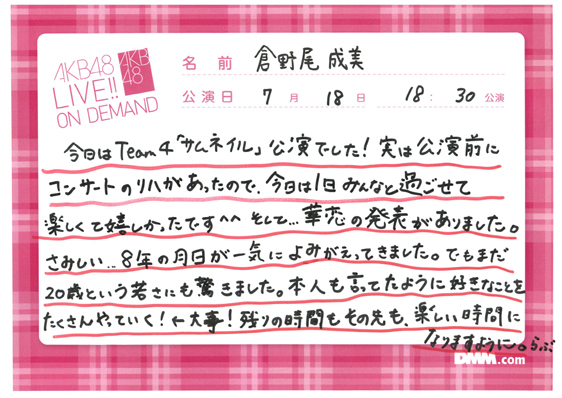 AKB48
LIVE!!
ON DEMAND
AKB
48
名前 倉野尾 成美
公演日 7月 18日 18:30公演
今日はTeam4「サムネイル」公演でした!実は公演前に
コンサートのリハがあったので、今日は1日みんなと過ごせて
楽しくて嬉しかったです^^ そして…華恋の発表がありました。
さみしい…8年の月日が一気によみがえってきました。でもまだ
20歳という若さにも驚きました。本人も言ってたように好きなことを
たくさんやっていく!←大事!残りの時間もその先も、楽しい時間に
なりますように。らぶ
DMM.com